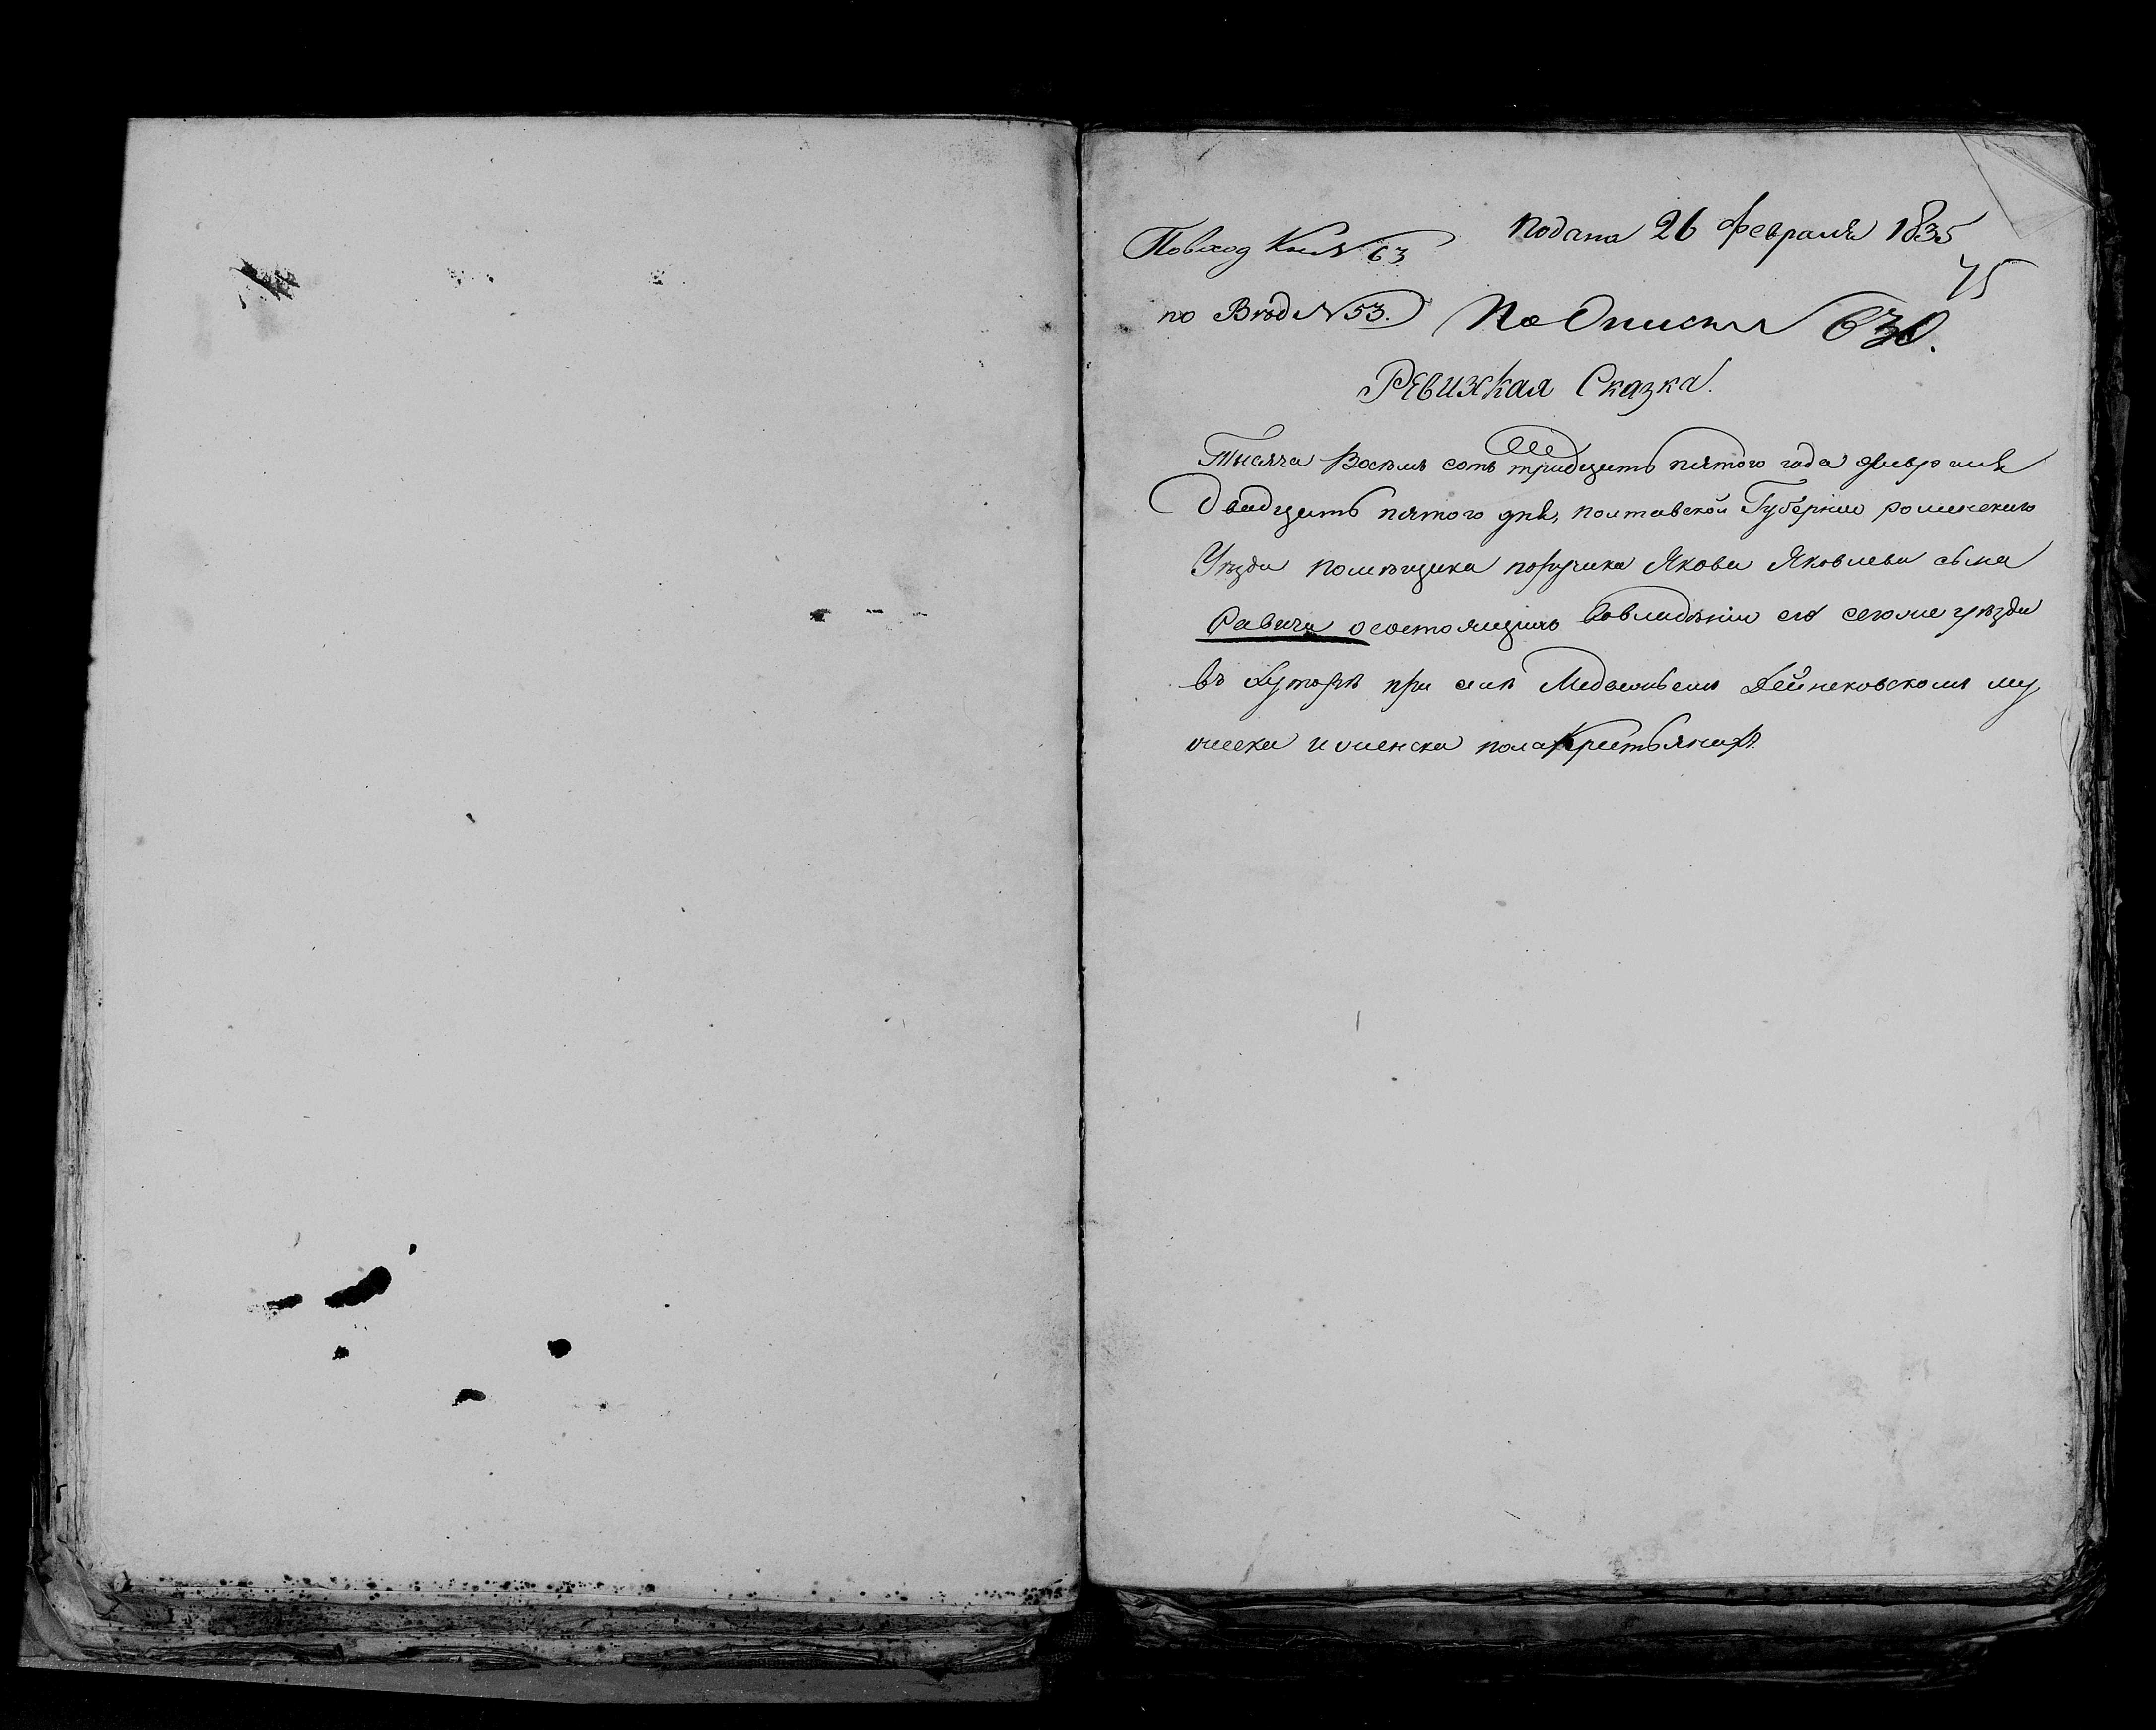 Подана 26 февраля 1835
Повход Кн № 63
75
по Вход № 53. По Описи № 630.
Ревизкая Сказка.
Тысяча Восемь сотъ тридцать пятого года февраля
двадцать пятого дня, полтавской Губернии роменского
Уезда помѣщика поручика Якова Яковлева сына
Савича о состоящихъ вовладѣнии его сегоже уѣзда
въ хуторѣ при селѣ Медвежьемъ Дейнековскомъ му
жеска и женска пола Крестьянахъ